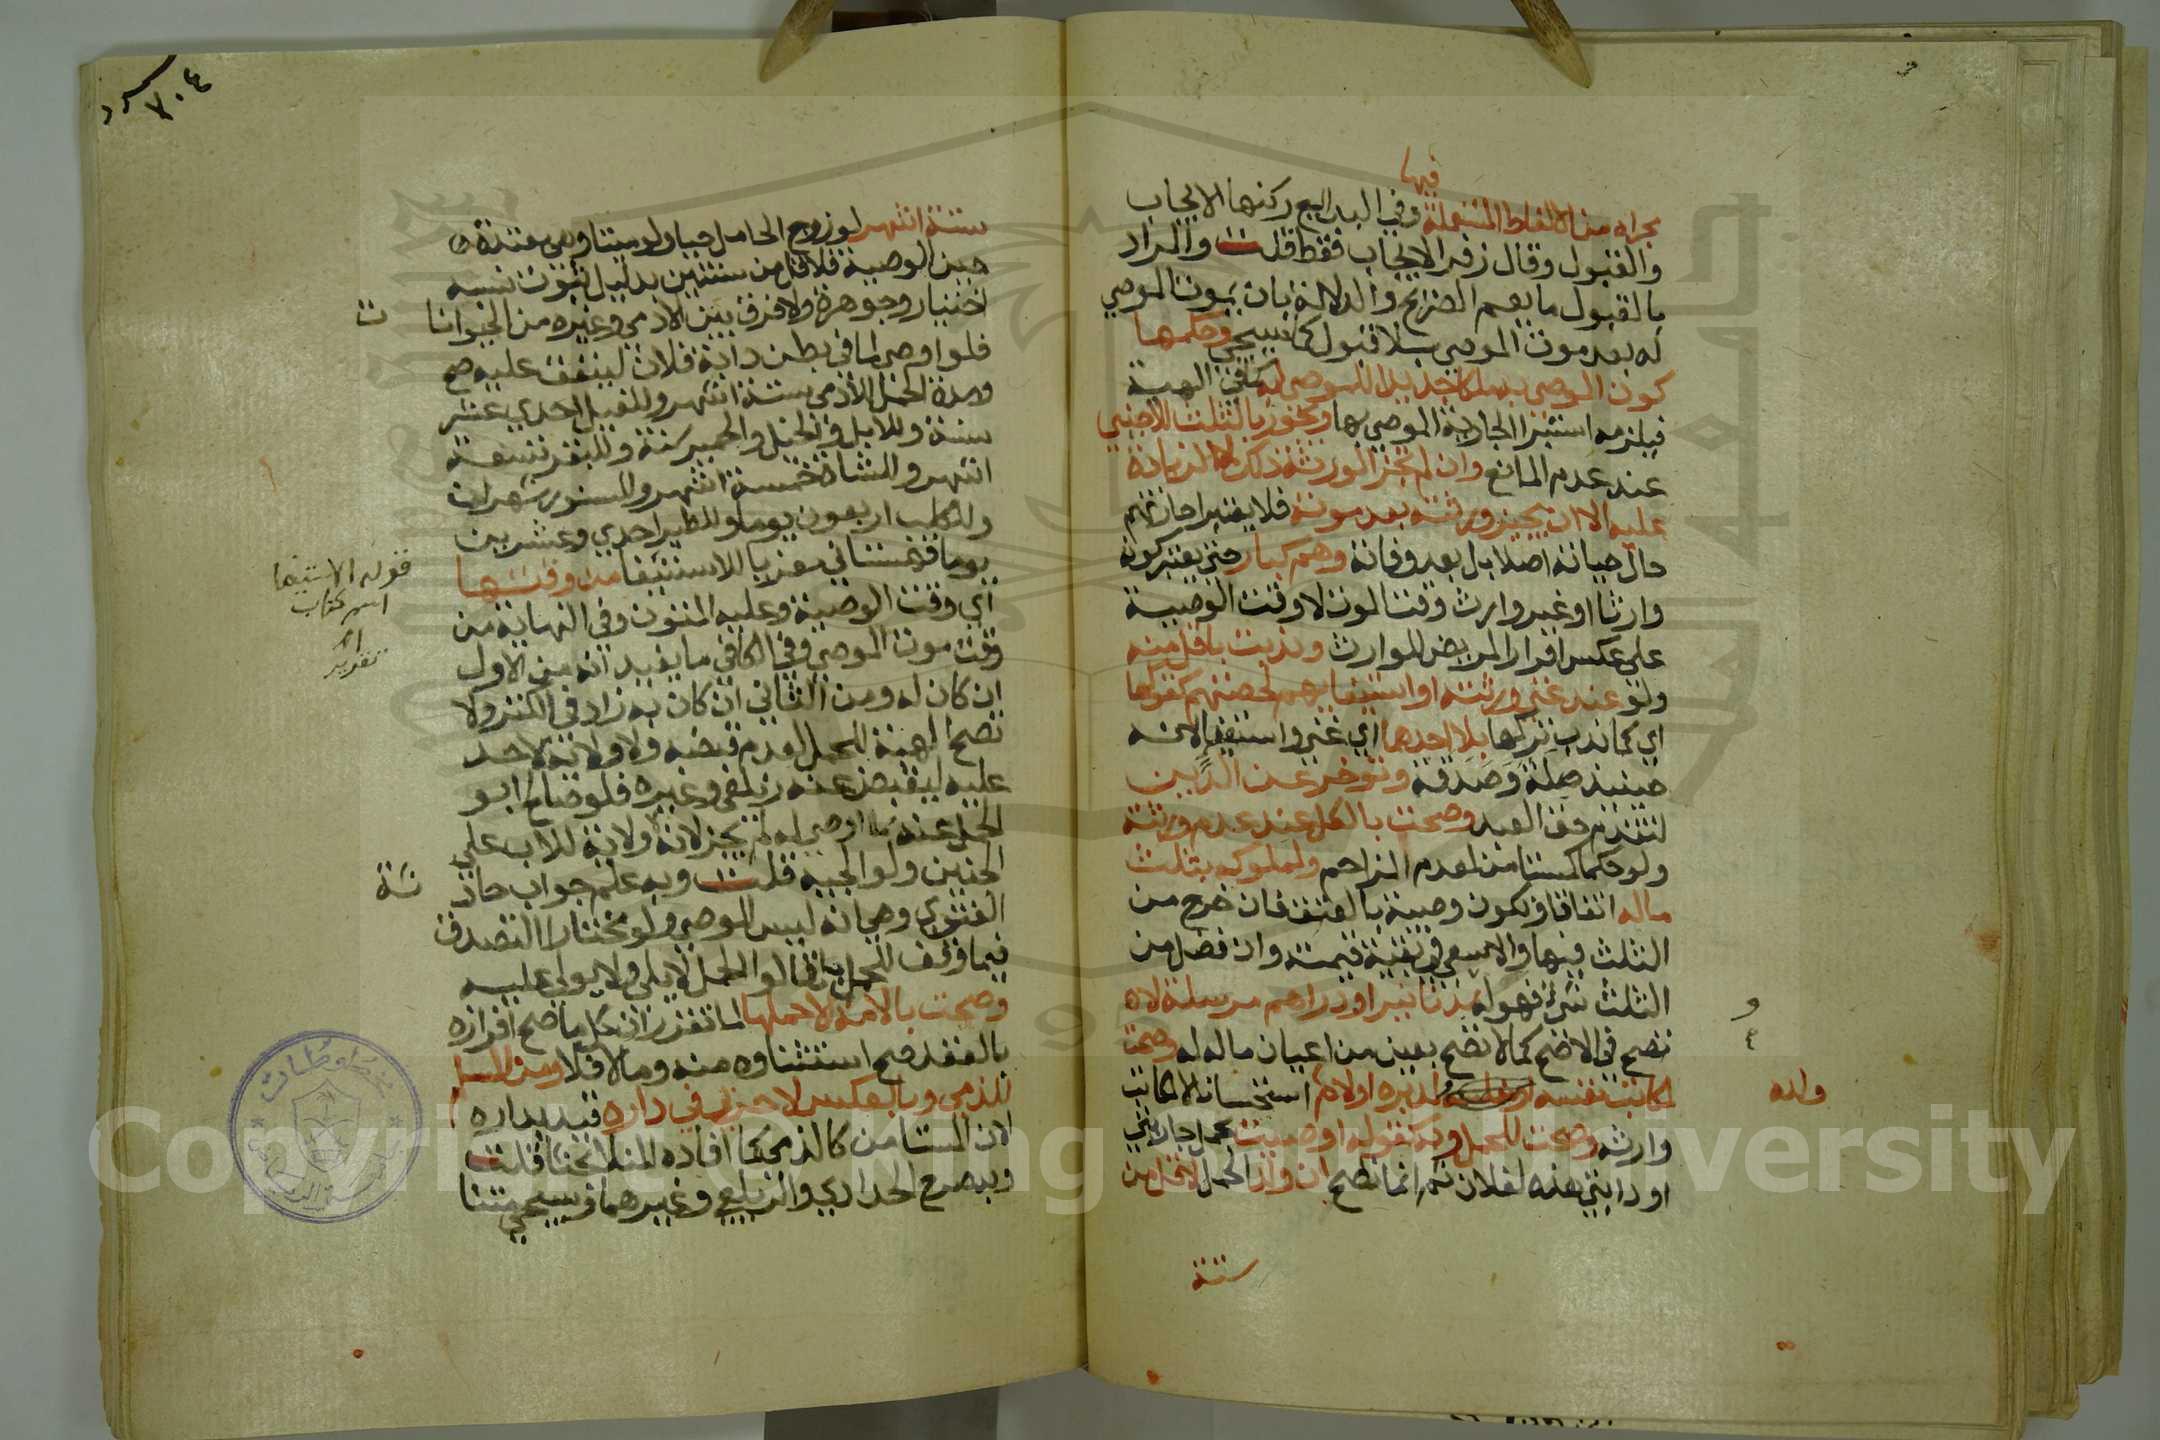 فيها
مجراه من الالفاظ المستعملة وفي البدايع ركنها الايجاب
والقبول وقال زفر الايجاب فقط قلت والمراد
بالقبول ما يعم الصريح والدلالة بان يموت الموصي
له بعد موت الموصي بلا قبول كما سيجي وحكمها
كون الموصي به ملكا جديدا للموصي له كما في الهبة
فيلزمه استبرا الجارية الموصي بها وتجوز بالثلث للاجنبي
عند عدم المانع وان لم تجز الورثة ذلك لا الزيادة
عليه الا ان يجيز ورثته بعد موته فلا يعتبر اجازتهم
حال حياته اصلا بل بعد وفاته وهم كبار حتي يعتبر كونه
وارثا او غير وارث وقت الموت لا وقت الوصية
علي عكس اقرار المريض للوارث وندبت باقل منه
ولو عند غني ورثته او استغنايهم بحصتهم كتركها
اي كما ندب تركها بلا احدهما اي غني واستغنا لانه
حينئذ صلة وصدقة وتوخر عن الدين
لتقدم حق العبد وصحت بالكل عند عدم ورثته
ولو حكما كمستامن لعدم المزاحم ولمملوكه بثلث
ماله اتفاقا وتكون وصية بالعتق فان خرج من
الثلث فبها والا سعي في بقية قيمته وان فضل من
الثلث شيء فهو له بدنانير او دراهم مرسلة لا
تصح في الاصح كما لا تصح بعين من اعيان ماله له وصحت
لمكاتب نفسه او لمدبره او لام ولده استحسانا لا لمكاتب
وارثه وصحت للحمل وبه كقوله اوصيت بحمل جاريتي
او دابتي هذه لفلان ثم انما تصح ان ولد الحمل لاقل من
ستة
٧٠٤
ستة اشهر لو زوج الحامل حيا ولو ميتا وهي معتدة
حين الوصية فلاقل من سنتين بدليل ثبوت نسبه
اختيار وجوهرة ولا فرق بين الادمي وغيره من الحيوانات
فلو اوصي لما في بطن دابة فلان لينفق عليه صح
ومدة الحمل للادمي ستة اشهر وللفيل احدي عشر
سنة وللابل والخيل والحمير سنة وللبقر تسعة
اشهر وللشاة خمسة اشهر وللسنور شهران
وللكلب اربعون يوما وللطير احدي وعشرين
يوما قهستاني معزيا للاستيفا من وقتها
اي وقت الوصية وعليه المتون وفي النهاية من
وقت موت الموصي وفي الكافي ما يفيد انه من الاول
ان كان له ومن الثاني ان كان به زاد في الكنز ولا
تصح الهبة للحمل لعدم قبضه ولا ولاية لاحد
عليه ليقبض عنه زيلعي وغيره فلو صالح ابو
الحمل عنه بما اوصي له لم يجز لانه لا ولاية للاب علي
الجنين ولوالجية قلت وبه علم جواب حادثة
الفتوي وهي انه ليس للوصي ولو مختارا التصرف
فيما وقف للحمل بل قالوا الحمل لا يلي ولا يولي عليه
وصحت بالامة الا حملها لما تقرر ان كل ما صح افرازه
بالعقد صح استثناوه منه وما لا فلا ومن المسلم
للذمي وبالعكس لا حربي في داره قيد بداره
لان المستامن كالذمي كما افاده المنلا بحثا قلت
وبه صرح الحدادي والزيلعي وغيرهما وسيجي متنا
قوله الاستيفا
اسم كتاب
اه
تقرير
ولده